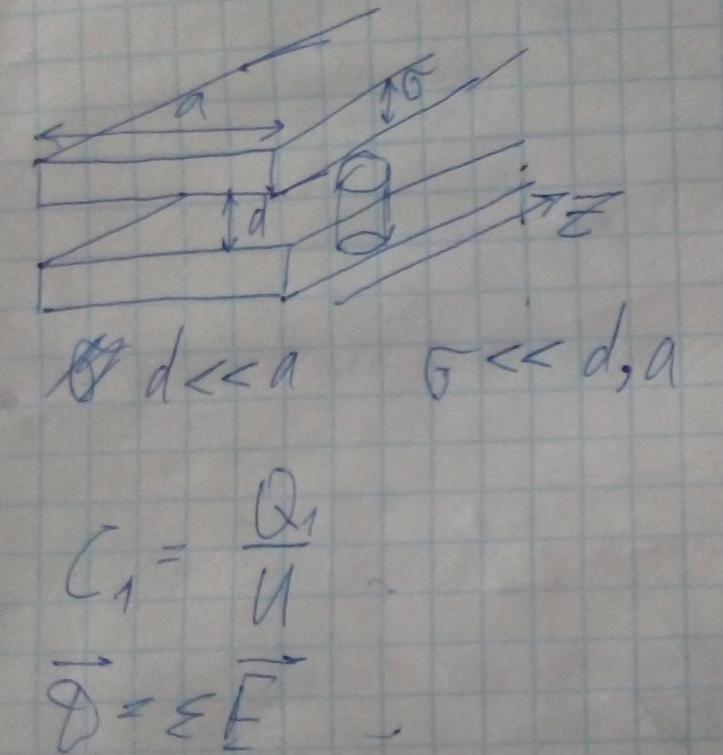 a
σ
d
Z
d << a σ << d, a
C₁ = Q₁ / U
D⃗ = εE⃗